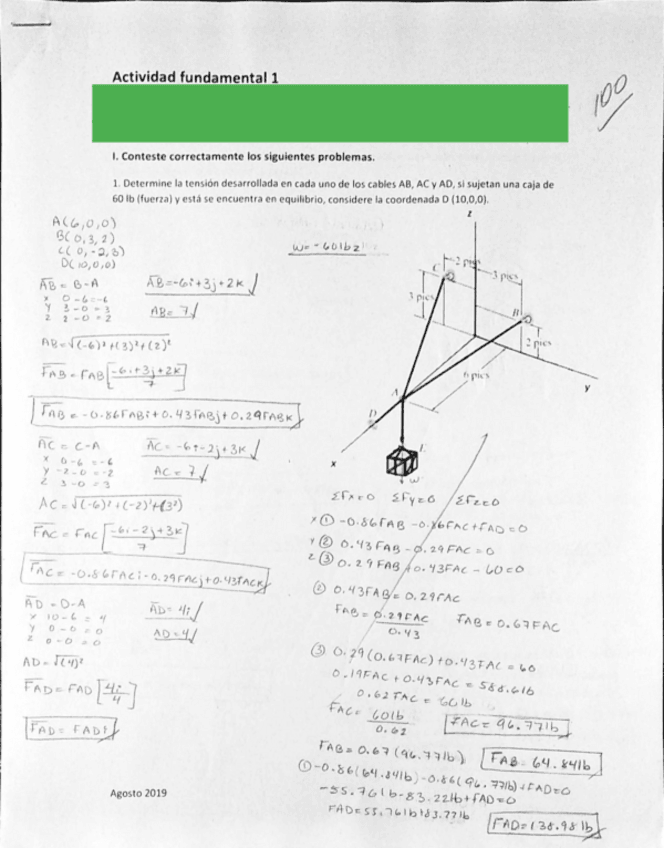 Actividad fundamental 1
100
I. Conteste correctamente los siguientes problemas.
1. Determine la tensión desarrollada en cada uno de los cables AB, AC y AD, si sujetan una caja de
60 lb (fuerza) y está se encuentra en equilibrio, considere la coordenada D (10,0,0).
A(6,0,0)
B(0,3,2)
C(0,-2,3)
D(10,0,0)
W=-60lbz
AB = B-A
x 0-6=-6
y 3-0=3
z 2-0=2
AB=-6i+3j+2k
AB=7
AB=√(-6)²+(3)²+(2)²
FAB=FAB[-6i+3j+2k/7]
FAB=-0.86FABi+0.43FABj+0.29FABk
AC = C-A
x 0-6=-6
y -2-0=-2
z 3-0=3
AC=-6i-2j+3k
AC=7
AC=√(-6)²+(-2)²+(3²)
FAC=FAC[-6i-2j+3k/7]
FAC=-0.86FACi-0.29FACj+0.43FACk
AD = D-A
x 10-6=4
y 0-0=0
z 0-0=0
AD=4i
AD=4
AD=√(4)²
FAD=FAD[4i/4]
FAD=FADi
z
C
2 pies
3 pies
3 pies
B
2 pies
6 pies
y
A
D
x
E
W
ΣFx=0 ΣFy=0 ΣFz=0
x ① -0.86FAB-0.86FAC+FAD=0
y ② 0.43FAB-0.29FAC=0
z ③ 0.29FAB+0.43FAC-60=0
② 0.43FAB=0.29FAC
FAB=0.29FAC/0.43
FAB=0.67FAC
③ 0.29(0.67FAC)+0.43FAC=60
0.19FAC+0.43FAC=
0.62FAC=60lb
FAC=60lb/0.62
FAC=96.77lb
FAB=0.67(96.77lb)
FAB=64.84lb
①-0.86(64.84lb)-0.86(96.77lb)+FAD=0
-55.76lb-83.22lb+FAD=0
FAD=55.76lb+83.22lb
FAD=138.98lb
Agosto 2019